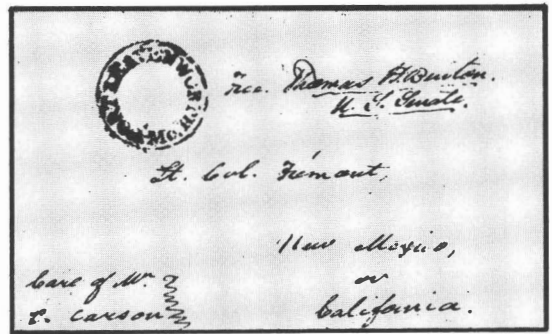 FORT LEAVENWORTH MO.
Free. Thomas H. Benton.
U. S. Senate.
Lt. Col. Frémont,
New Mexico,
or
California.
Care of Mr
C. Carson